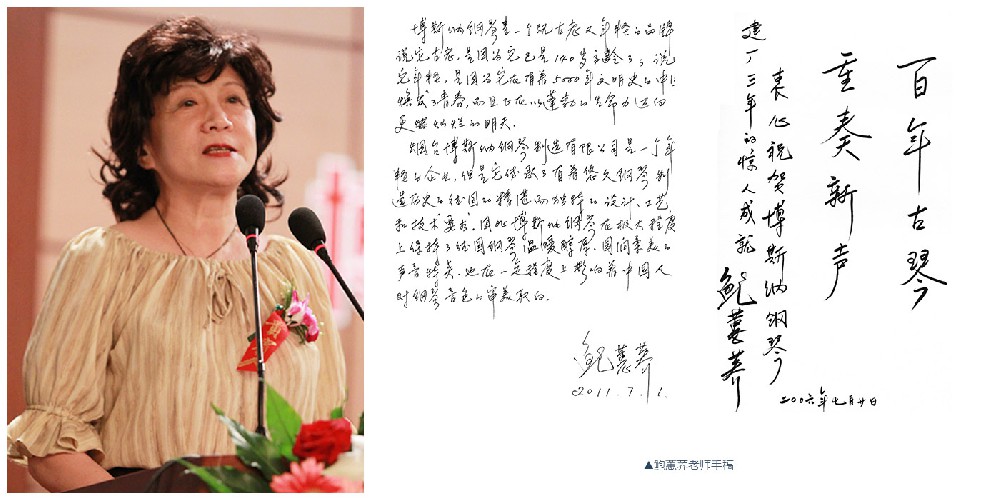 博斯纳钢琴是一个既古老又年轻的品牌
说它古老，是因为它已是140岁高龄了；说
它年轻，是因为它在有着5000年文明史的中国
焕发了青春，而且正在以蓬勃的生命力迈向
更灿烂的明天。
烟台博斯纳钢琴制造有限公司是一个年
轻的企业，但是它传承了有着悠久钢琴制
造历史的德国的精湛而独特的设计、工艺
和技术要求，因此博斯纳钢琴在极大程度
上保持了德国钢琴温暖醇厚、圆润柔美的
声音特点，也在一定程度上影响着中国人
对钢琴音色的审美取向。
鲍蕙荞
2011.7.1.
百年古琴
重奏新声
衷心祝贺博斯纳钢琴
建厂三年的惊人成就
鲍蕙荞
2006年七月廿日
▲鲍蕙荞老师手稿